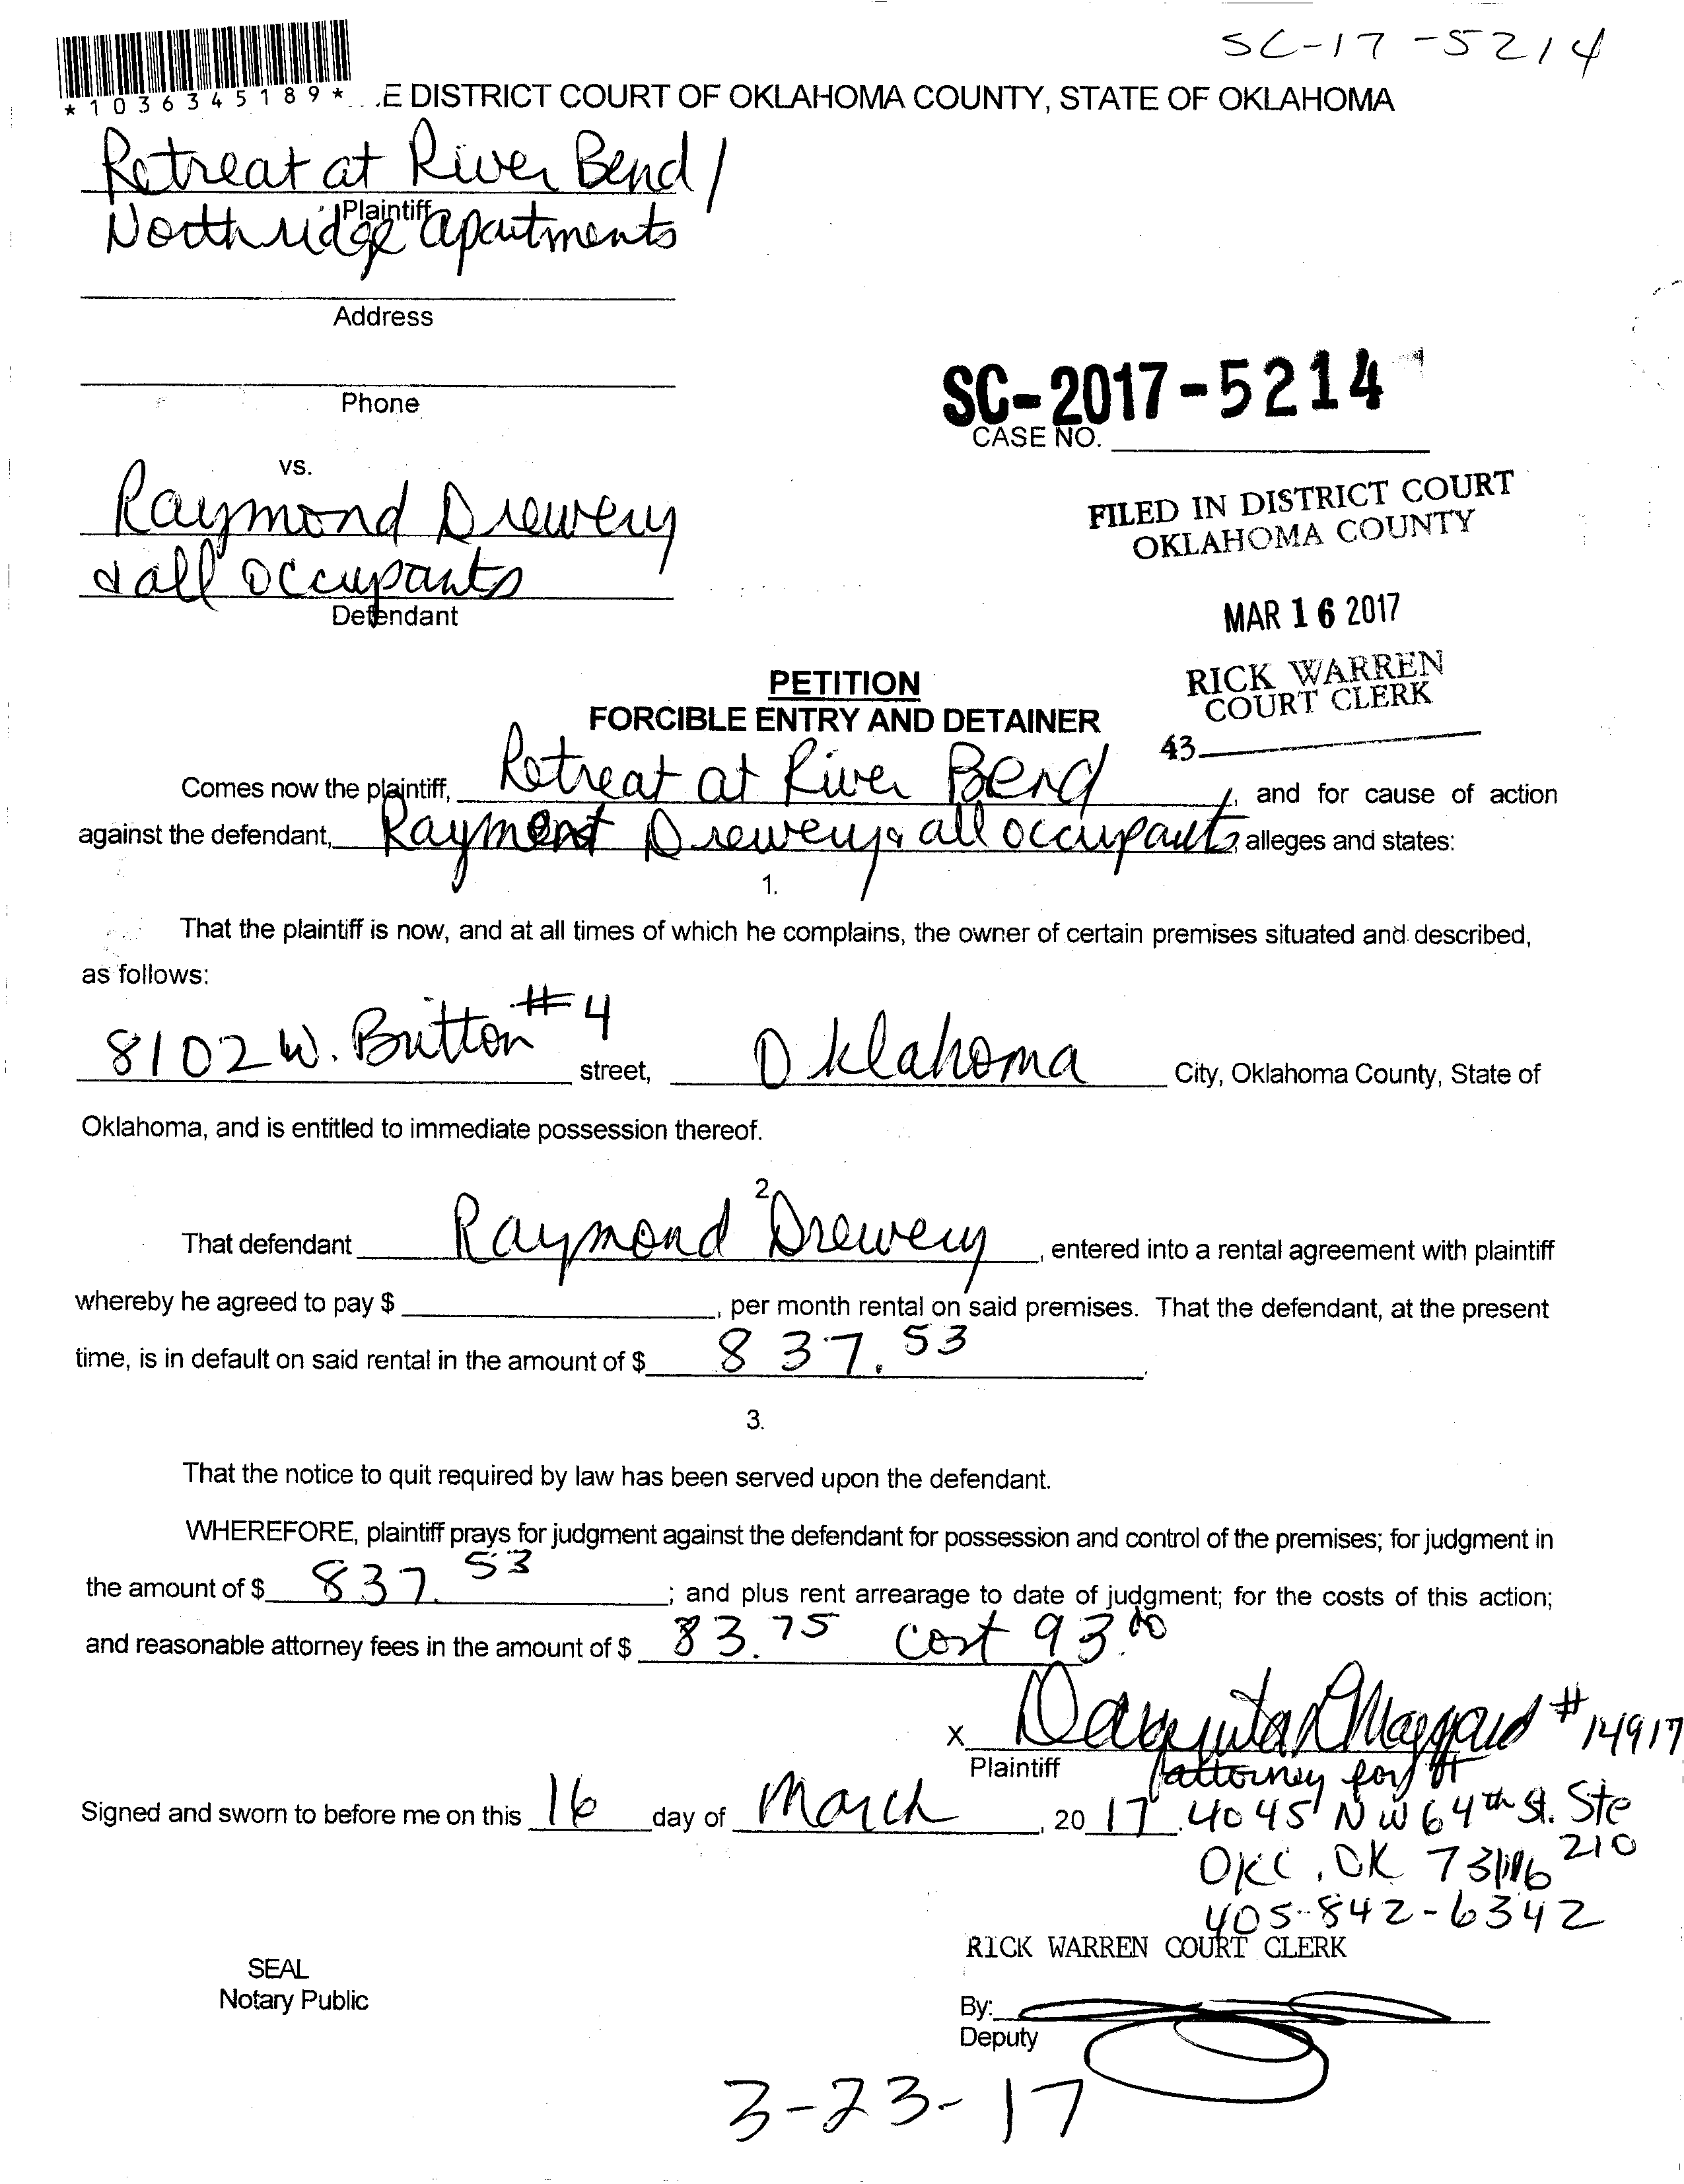 SC-17-5214
*1036345189* .E DISTRICT COURT OF OKLAHOMA COUNTY, STATE OF OKLAHOMA
Retreat at River Bend /
Plaintiff
Northridge apartments
Address
Phone
SC-2017-5214
CASE NO.
vs.
Raymond Drewery
& all occupants
Defendant
FILED IN DISTRICT COURT
OKLAHOMA COUNTY
MAR 16 2017
RICK WARREN
COURT CLERK
43
PETITION
FORCIBLE ENTRY AND DETAINER
Comes now the plaintiff, Retreat at River Bend, and for cause of action
against the defendant, Raymond Drewery & all occupants, alleges and states:
1.
That the plaintiff is now, and at all times of which he complains, the owner of certain premises situated and described,
as follows:
8102 W. Britton #4 street, Oklahoma City, Oklahoma County, State of
Oklahoma, and is entitled to immediate possession thereof.
2.
That defendant Raymond Drewery, entered into a rental agreement with plaintiff
whereby he agreed to pay $, per month rental on said premises. That the defendant, at the present
time, is in default on said rental in the amount of $ 837.53.
3.
That the notice to quit required by law has been served upon the defendant.
WHEREFORE, plaintiff prays for judgment against the defendant for possession and control of the premises; for judgment in
the amount of $ 837.53; and plus rent arrearage to date of judgment; for the costs of this action;
and reasonable attorney fees in the amount of $ 83.75 cost 93.00
X #14917
Plaintiff attorney for
Signed and sworn to before me on this 16 day of March, 2017. 4045 NW 64th St. Ste 210
OKC, OK 73116
405-842-6342
RICK WARREN COURT CLERK
SEAL
Notary Public
By:
Deputy
3-23-17